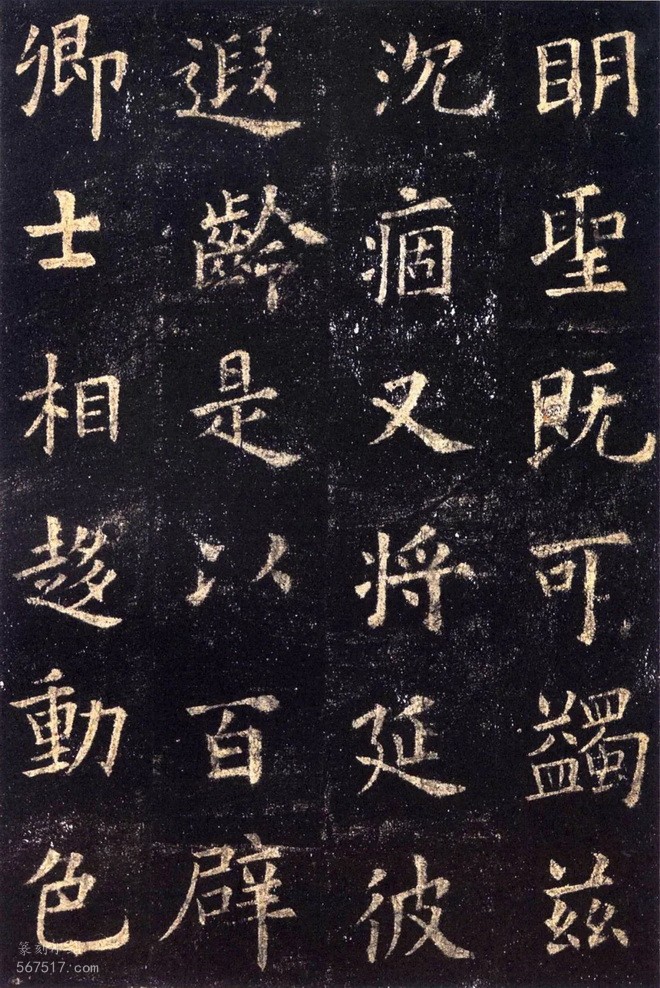 明聖既可蠲茲
沉痼又將延彼
遐齡是以百辟
卿士相趍動色
567517.com